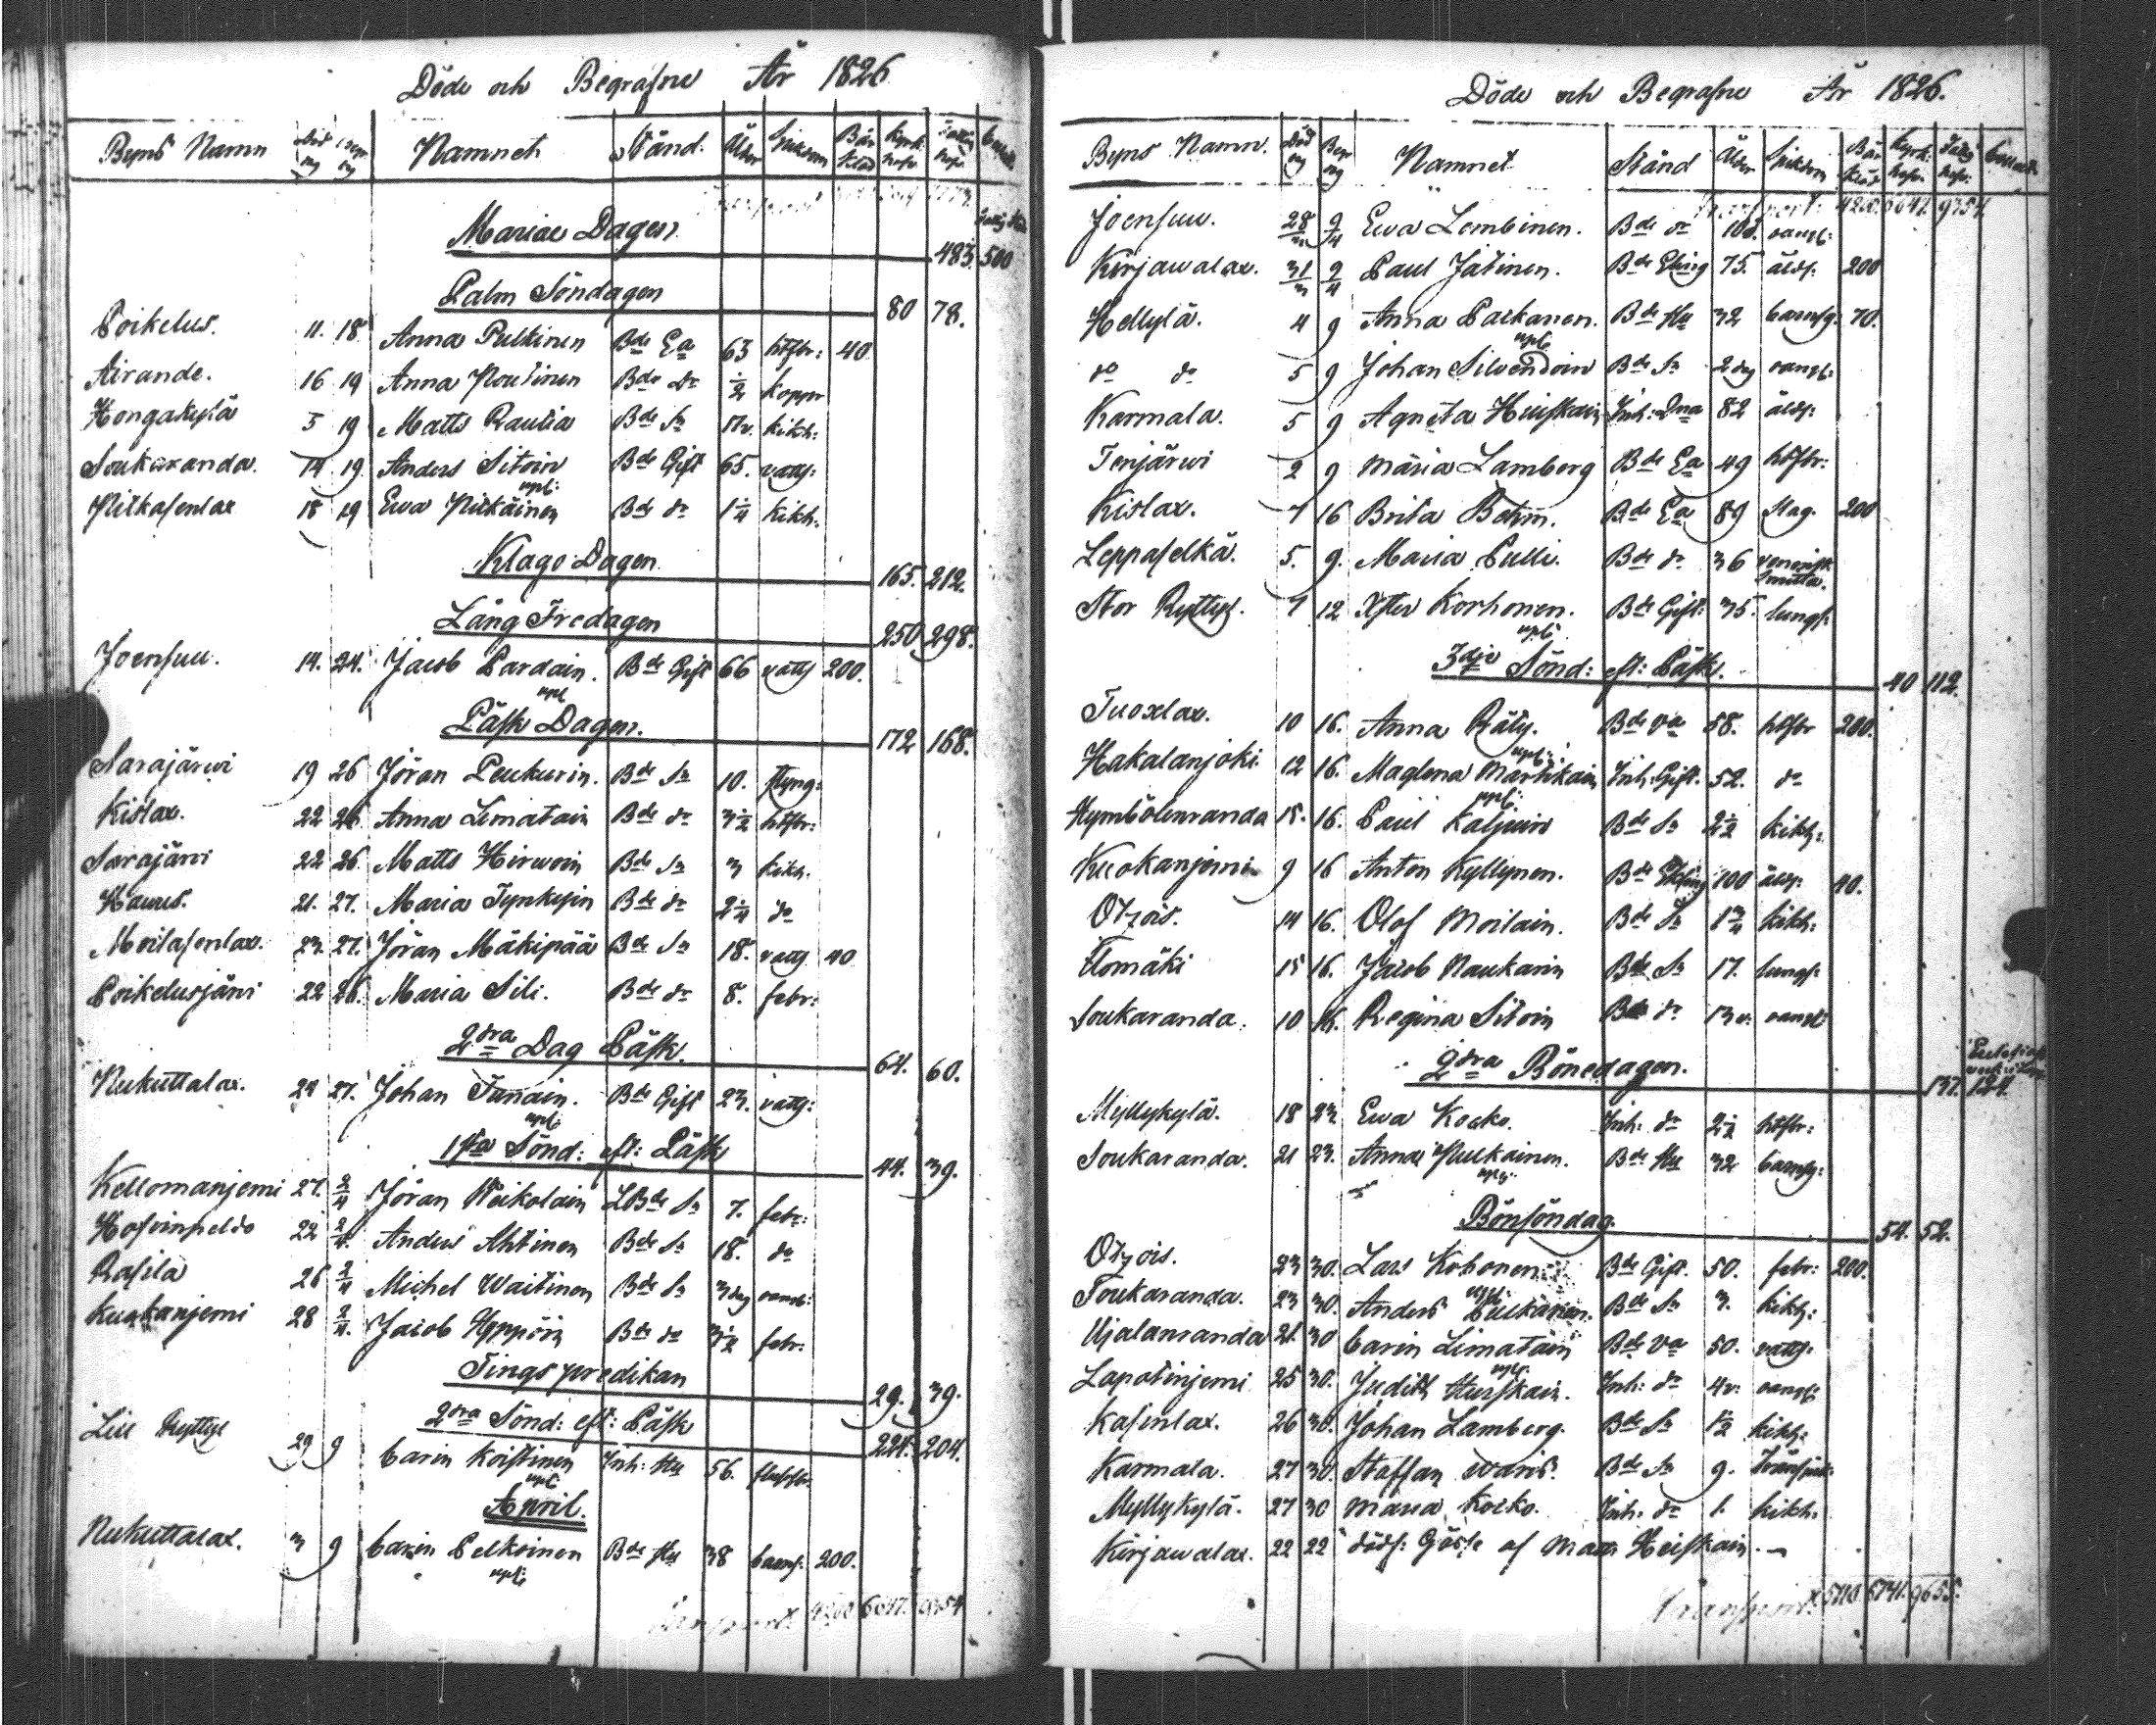 Döde och Begrafne År 1826
Byns Namn Namnet Stånd. Ålder Sjukdom Bår kläd Kyrk: hafv:
Mariae Dagen 483. 500
Palm Söndagen 80 78.
Poikelus. 11. 18 Anna Pulkinen Bde Ea 63 höftr: 40
Airande. 16 19 Anna Noutinen Bde Dr 1/2 koppor
Hongakylä 5 19 Matts Rautia Bde Sn kikh:
Soukaranda. 14 19. Anders Sitoin Bde Gift 65. vatts:
Nikkasenlax 18 19 Ewa Nikkäinen Bde dr 1 1/4 kikh.
Klago Dagen 165. 212.
Lång Fredagen 250 298.
Joensuu. 14. 24. Jacob Pardain. Bde Gift 66 vatts 200.
Påsk Dagen. 172 168.
Sarajärwi 19 26 Jöran Leukurin. Bde Sn 10.
Kislax. 22 26 Anna Limatain Bde dr 3 1/2 höftr:
Sarajärvi 22 26. Matts Hirwoin Bde Sn 3 kikh.
Haukes. 21. 27. Maria Tynkyin Bde dr 2 1/4 do
Moilasenlax. 23 27. Jöran Mäkipää Bde Sn 18. vatts 40
Poikelusjärvi 22 26. Maria Sili. Bde dr 8. febr:
2dra Dag Påsk. 64. 60.
Nukuttalax. 24 27. Johan Tunain. Bde Gift 23. vatts:
1sta Sönd: eft: Påsk 44. 39.
Kellomanjemi 27. 2/4 Jöran Weikolain LBde Sn 7. febr:
22 2/4. Anders Ahtinen Bde Sn 18. do
Rasila 26 2/4 Michel Waitinen Bde Sn 3 dag oangl:
Kuokanjemi 28 2/4. Jacob Hyppöin Bde dr 3 1/2 febr:
Tings predikan 29. 39.
2dra Sönd: eft: Påsk 224. 204.
Lill Ryttyl 29 9 Carin Koistinen Inh: Hu 56.
April.
Nukuttalax. 3 9 Carin Pelkoinen Bde Hu 38 barns: 200.
Transport 4200 6647. 9354
Döde och Begrafne År 1826.
Byns Namn. Död Begr Namnet Stånd Ålder Sjukdom Bår kläd Kyrk: hafv:
Transport: 4200. 6647. 9354.
Joensuu. 28/3 9/4 Ewa Lembinen. Bde dr oangl:
Kirjawalax. 31/3 9/4 Paul Jätinen. Bde Ekling 75. ålds: 200
Hellylä. 4 9 Anna Packanen. Bde Hu 32 barnsg: 70.
do do 5 9 Johan Silvendoin Bde Sn 2 dag oangl:
Karmala. 5 9 Agneta Huiskain Inh: Dna 82 ålds:
Tenjärwi 2 9 Maria Lamberg Bde Ea 49 höftr:
Kislax. 7 16 Brita Behm. Bde Ea 89 slag. 200
Leppäselkä. 5. 9. Maria Pulli. Bde dr 36 venerisk smitta.
Stor Ryttyl. 7 12 Xster Korhonen. Bde Gift: 35. lungs:
3dje Sönd: eft: Påsk. 40 112.
Tuoxlax. 10 16. Anna Räty. Bde Va 58. höftr 200.
Hakalanjoki 12 16. Maglena Martikain Inh: Gift. 52. do
Hymbölenranda 15. 16. Paul Kaljuin Bde Sn 2 1/2 kikh:
Kuokanjemi 9 16 Anton Kyllynen. Bde Ekling 100 ålds: 40.
Otzois. 14 16. Olof Moilain. Bde Sn 1 3/4 kikh:
Ilomäki 15 16. Jacob Naukarin Bde Sn 17. lungs:
Soukaranda. 10 16. Regina Sitoin Bde dr 13 v. oangl:
2dra Bönedagen. 137. 124.
Myllykylä. 18 23. Ewa Kocko. Inh: dr 2 1/2 höftr:
Soukaranda. 21 23. Anna Nulkainen. Bde Hu 32 barnsg:
Bönsöndag. 54. 52.
Otzois. 23 30. Lars Kohonen Bde Gift. 50. febr: 200.
Toukaranda. 23 30. Anders Pulkäinen. Bde Sn 3. kikh:
Ujalanranda 21. 30 Carin Limatain Bde Va 50. vatts:
Lapotinjemi 25 30. Judith Hurskain. Inh: dr 4 v. oangl:
Kasinlax. 26 30. Johan Lamberg. Bde Sn 1 1/2 kikh:
Karmala. 27 30. Staffan Waris. Bde Sn 9.
Myllykylä. 27 30 Maria Kocko. Inh: dr 1. kikh.
Kirjawalax. 22 22 dödf: Gösse af Heiskain
Transport. 5710 6741. 9655.